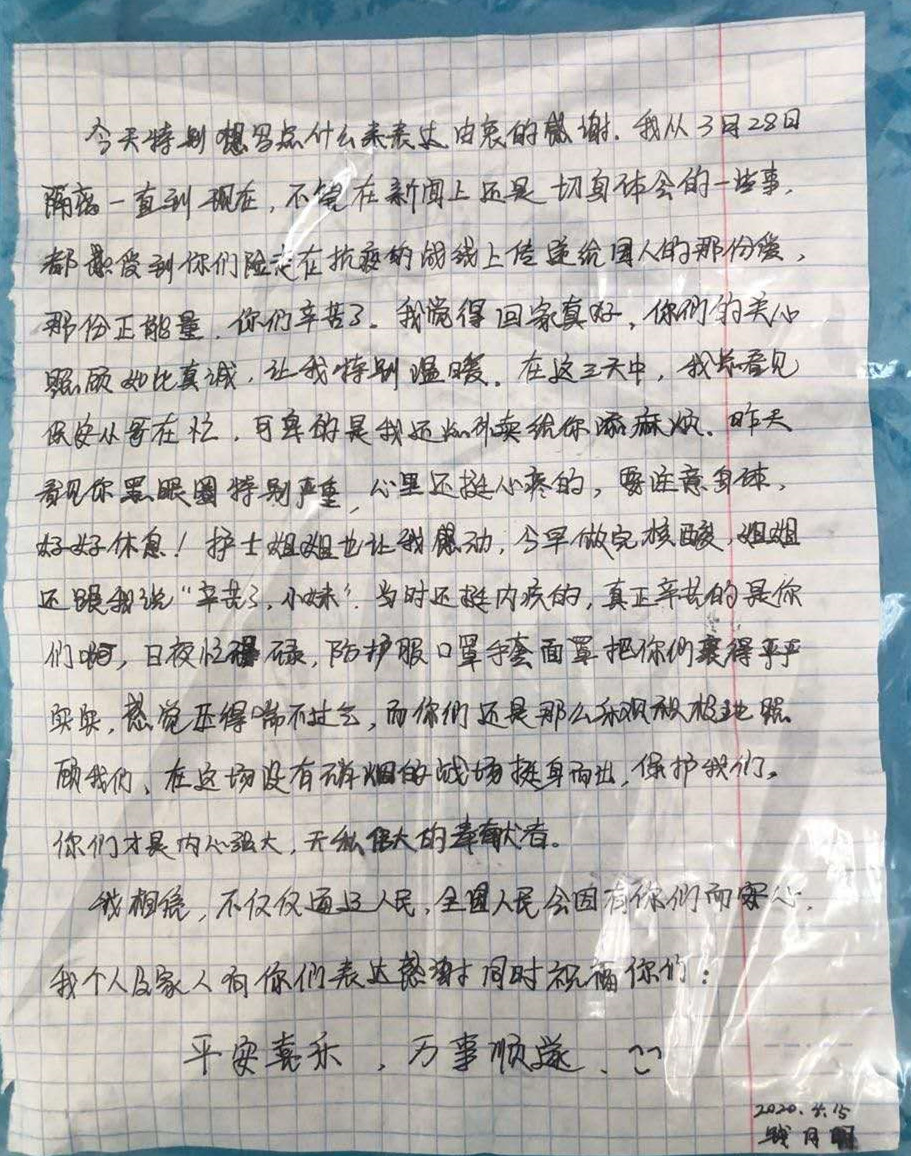 今天特别想写点什么来表达由衷的感谢. 我从3月28日
隔离一直到现在, 不管在新闻上还是切身体会的一些事,
都感受到你们陆志在抗疫的战线上传递给国人的那份爱,
那份正能量, 你们辛苦了。我觉得回家真好, 你们的关心
照顾如此真诚, 让我特别温暖。在这三天中, 我总看见
保安小哥在忙, 可卑的是我还点外卖给你添麻烦. 昨天
看见你黑眼圈特别严重, 心里还挺心疼的, 要注意身体,
好好休息! 护士姐姐也让我感动, 今早做完核酸, 姐姐
还跟我说“辛苦了, 小妹”. 当时还挺内疚的, 真正辛苦的是你
们啊, 日夜忙碌, 防护服口罩手套面罩把你们裹得严严
实实, 感觉压得喘不过气, 而你们还是那么乐观积极地照
顾我们、在这场没有硝烟的战场挺身而出, 保护我们。
你们才是内心强大, 无私伟大的奉献者。
我相信, 不仅仅通辽人民, 全国人民会因有你们而安心.
我个人及家人向你们表达感谢同时祝福你们:
平安喜乐, 万事顺遂.
2020.4.15
月明